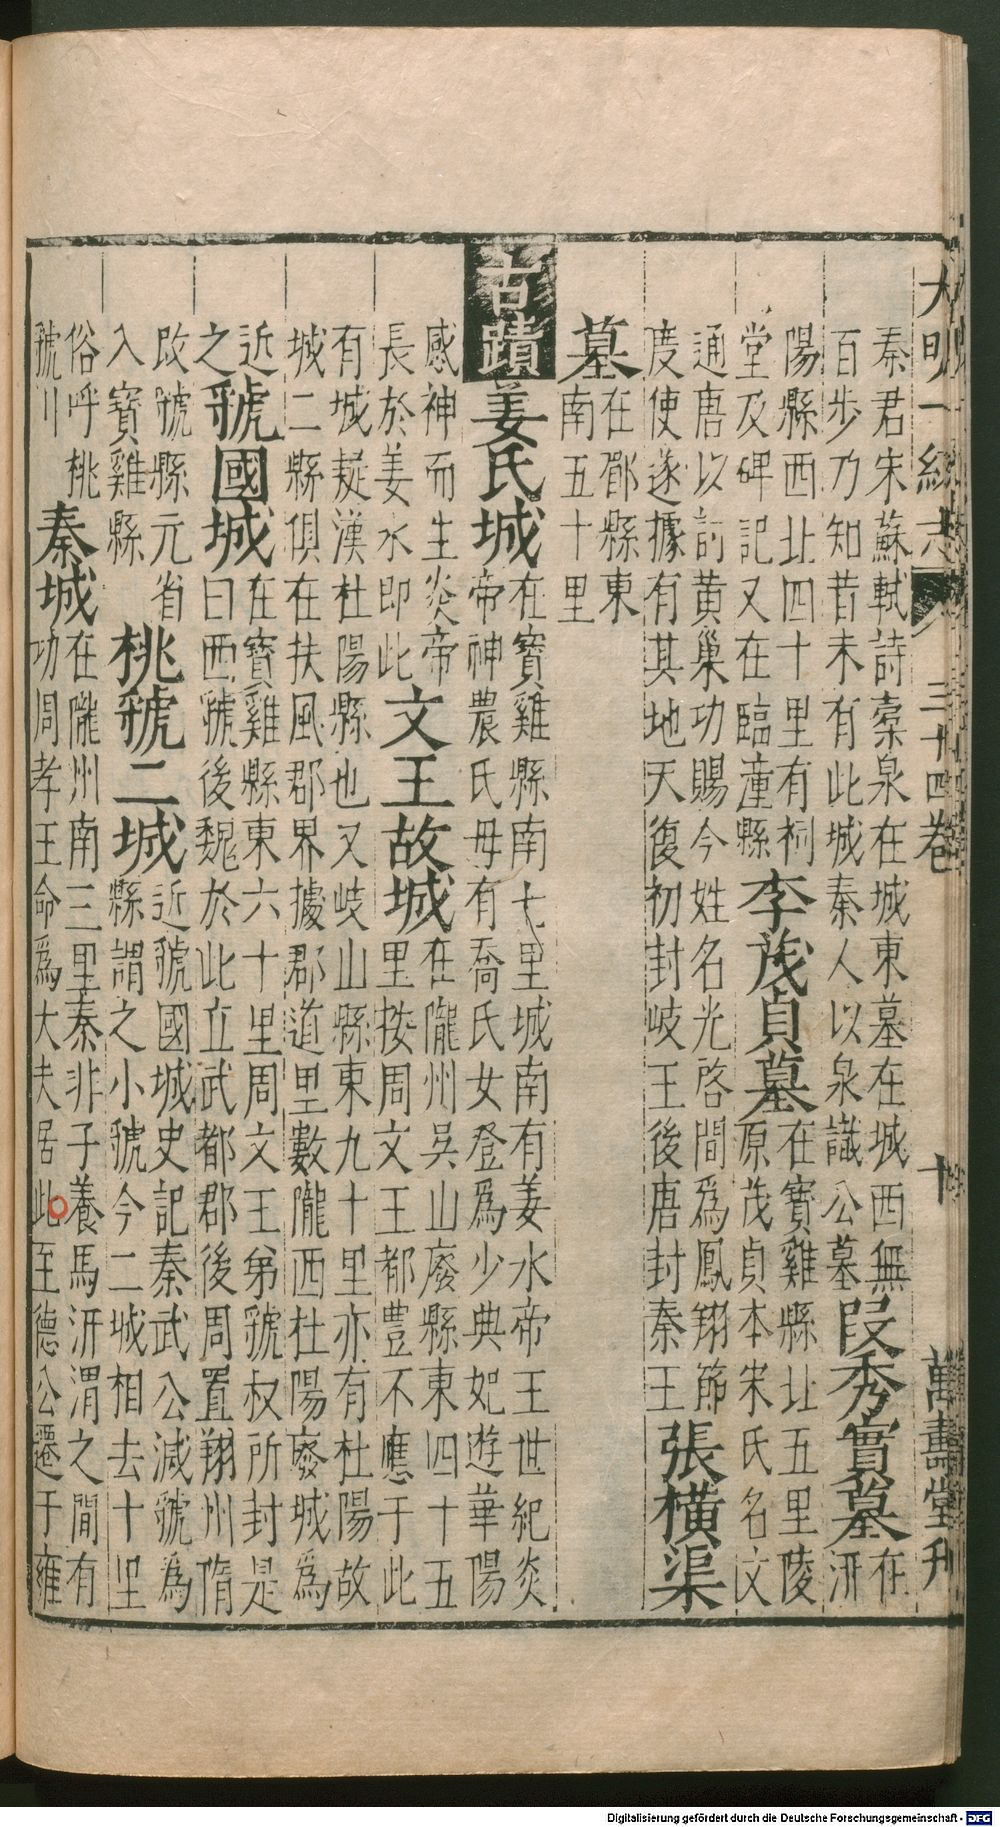 大明一統志 三十四卷 十 萬壽堂刊
秦君宋蘇軾詩橐泉在城東墓在城西無
百步乃知昔未有此城秦人以泉識公墓
段秀實墓
在
汧
陽縣西北四十里有祠
堂及碑記又在臨潼縣
李茂貞墓
在寶雞縣北五里陵
原茂貞本宋氏名文
通唐以討黄巢功賜今姓名光啓間為鳳翔節
度使遂據有其地天復初封岐王後唐封秦王
張橫渠
墓
在郿縣東
南五十里
古蹟
姜氏城
在寶雞縣南七里城南有姜水帝王世紀炎
帝神農氏母有喬氏女登為少典妃遊華陽
感神而生炎帝
長於姜水即此
文王故城
在隴州吳山廢縣東四十五
里按周文王都豐不應于此
有城疑漢杜陽縣也又岐山縣東九十里亦有杜陽故
城二縣俱在扶風郡界據郡道里數隴西杜陽廢城為
近
之
虢國城
在寶雞縣東六十里周文王弟虢叔所封是
曰西虢後魏於此立武都郡後周置翔州隋
改虢縣元省
入寶雞縣
桃虢二城
近虢國城史記秦武公滅虢為
縣謂之小虢今二城相去十里
俗呼桃
虢川
秦城
在隴州南三里秦非子養馬汧渭之間有
功周孝王命為大夫居此至德公遷于雍
Digitalisierung gefördert durch die Deutsche Forschungsgemeinschaft - DFG